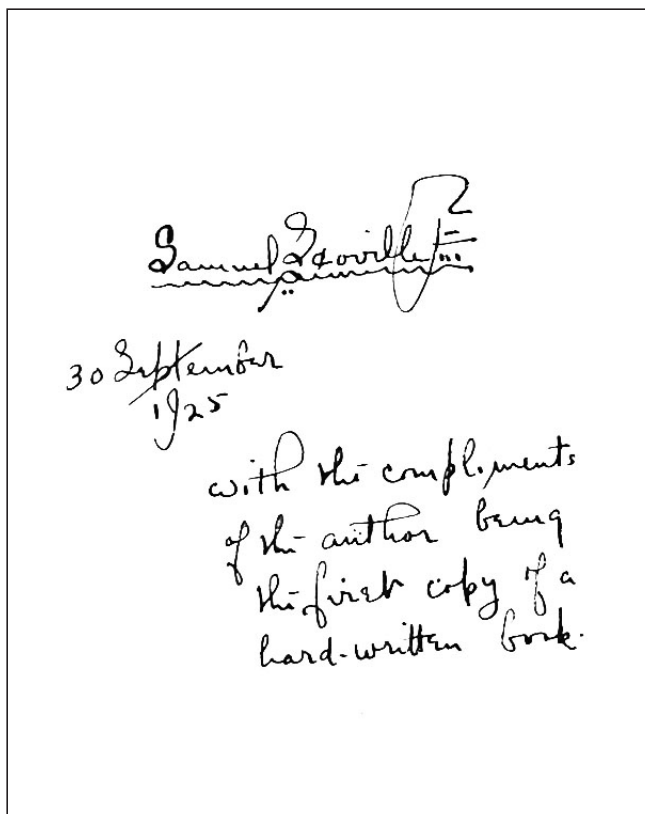 Samuel Scoville Jr
30 September
1925
with the compliments
of the author being
the first copy of a
hard-written book.